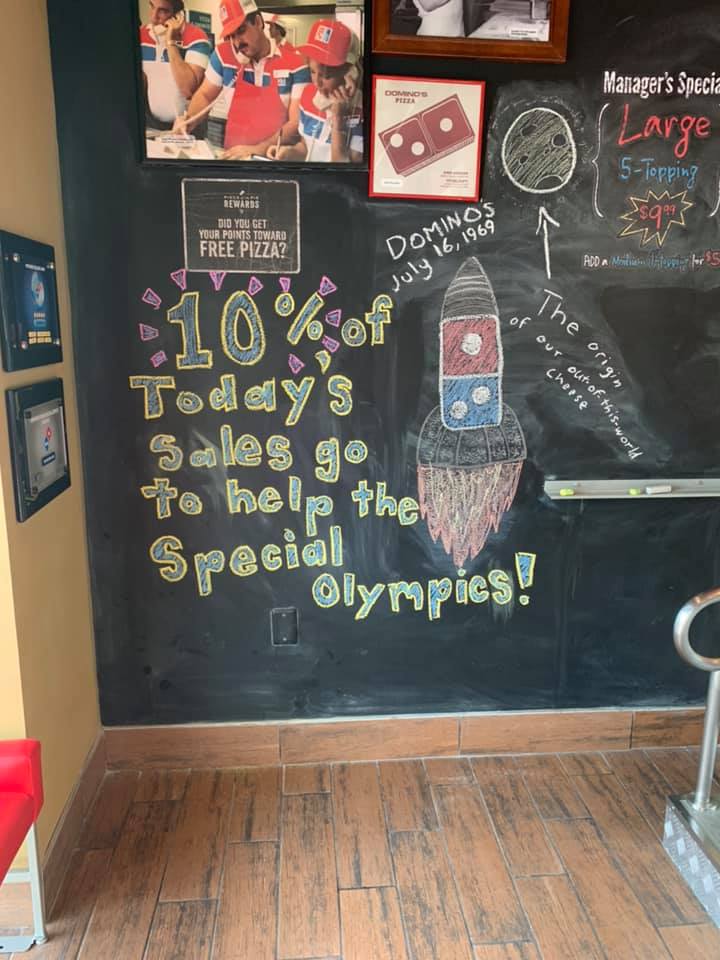 DOMINO'S
PIZZA
Manager's Specia
Large
5-Topping
$9.99
ADD a Medium 1 Topping for $5
REWARDS
DID YOU GET
YOUR POINTS TOWARD
FREE PIZZA?
DOMINO'S
July 16, 1969
The origin
of our out of this world
cheese
10% of
Today's
Sales go
to help the
Special
Olympics!